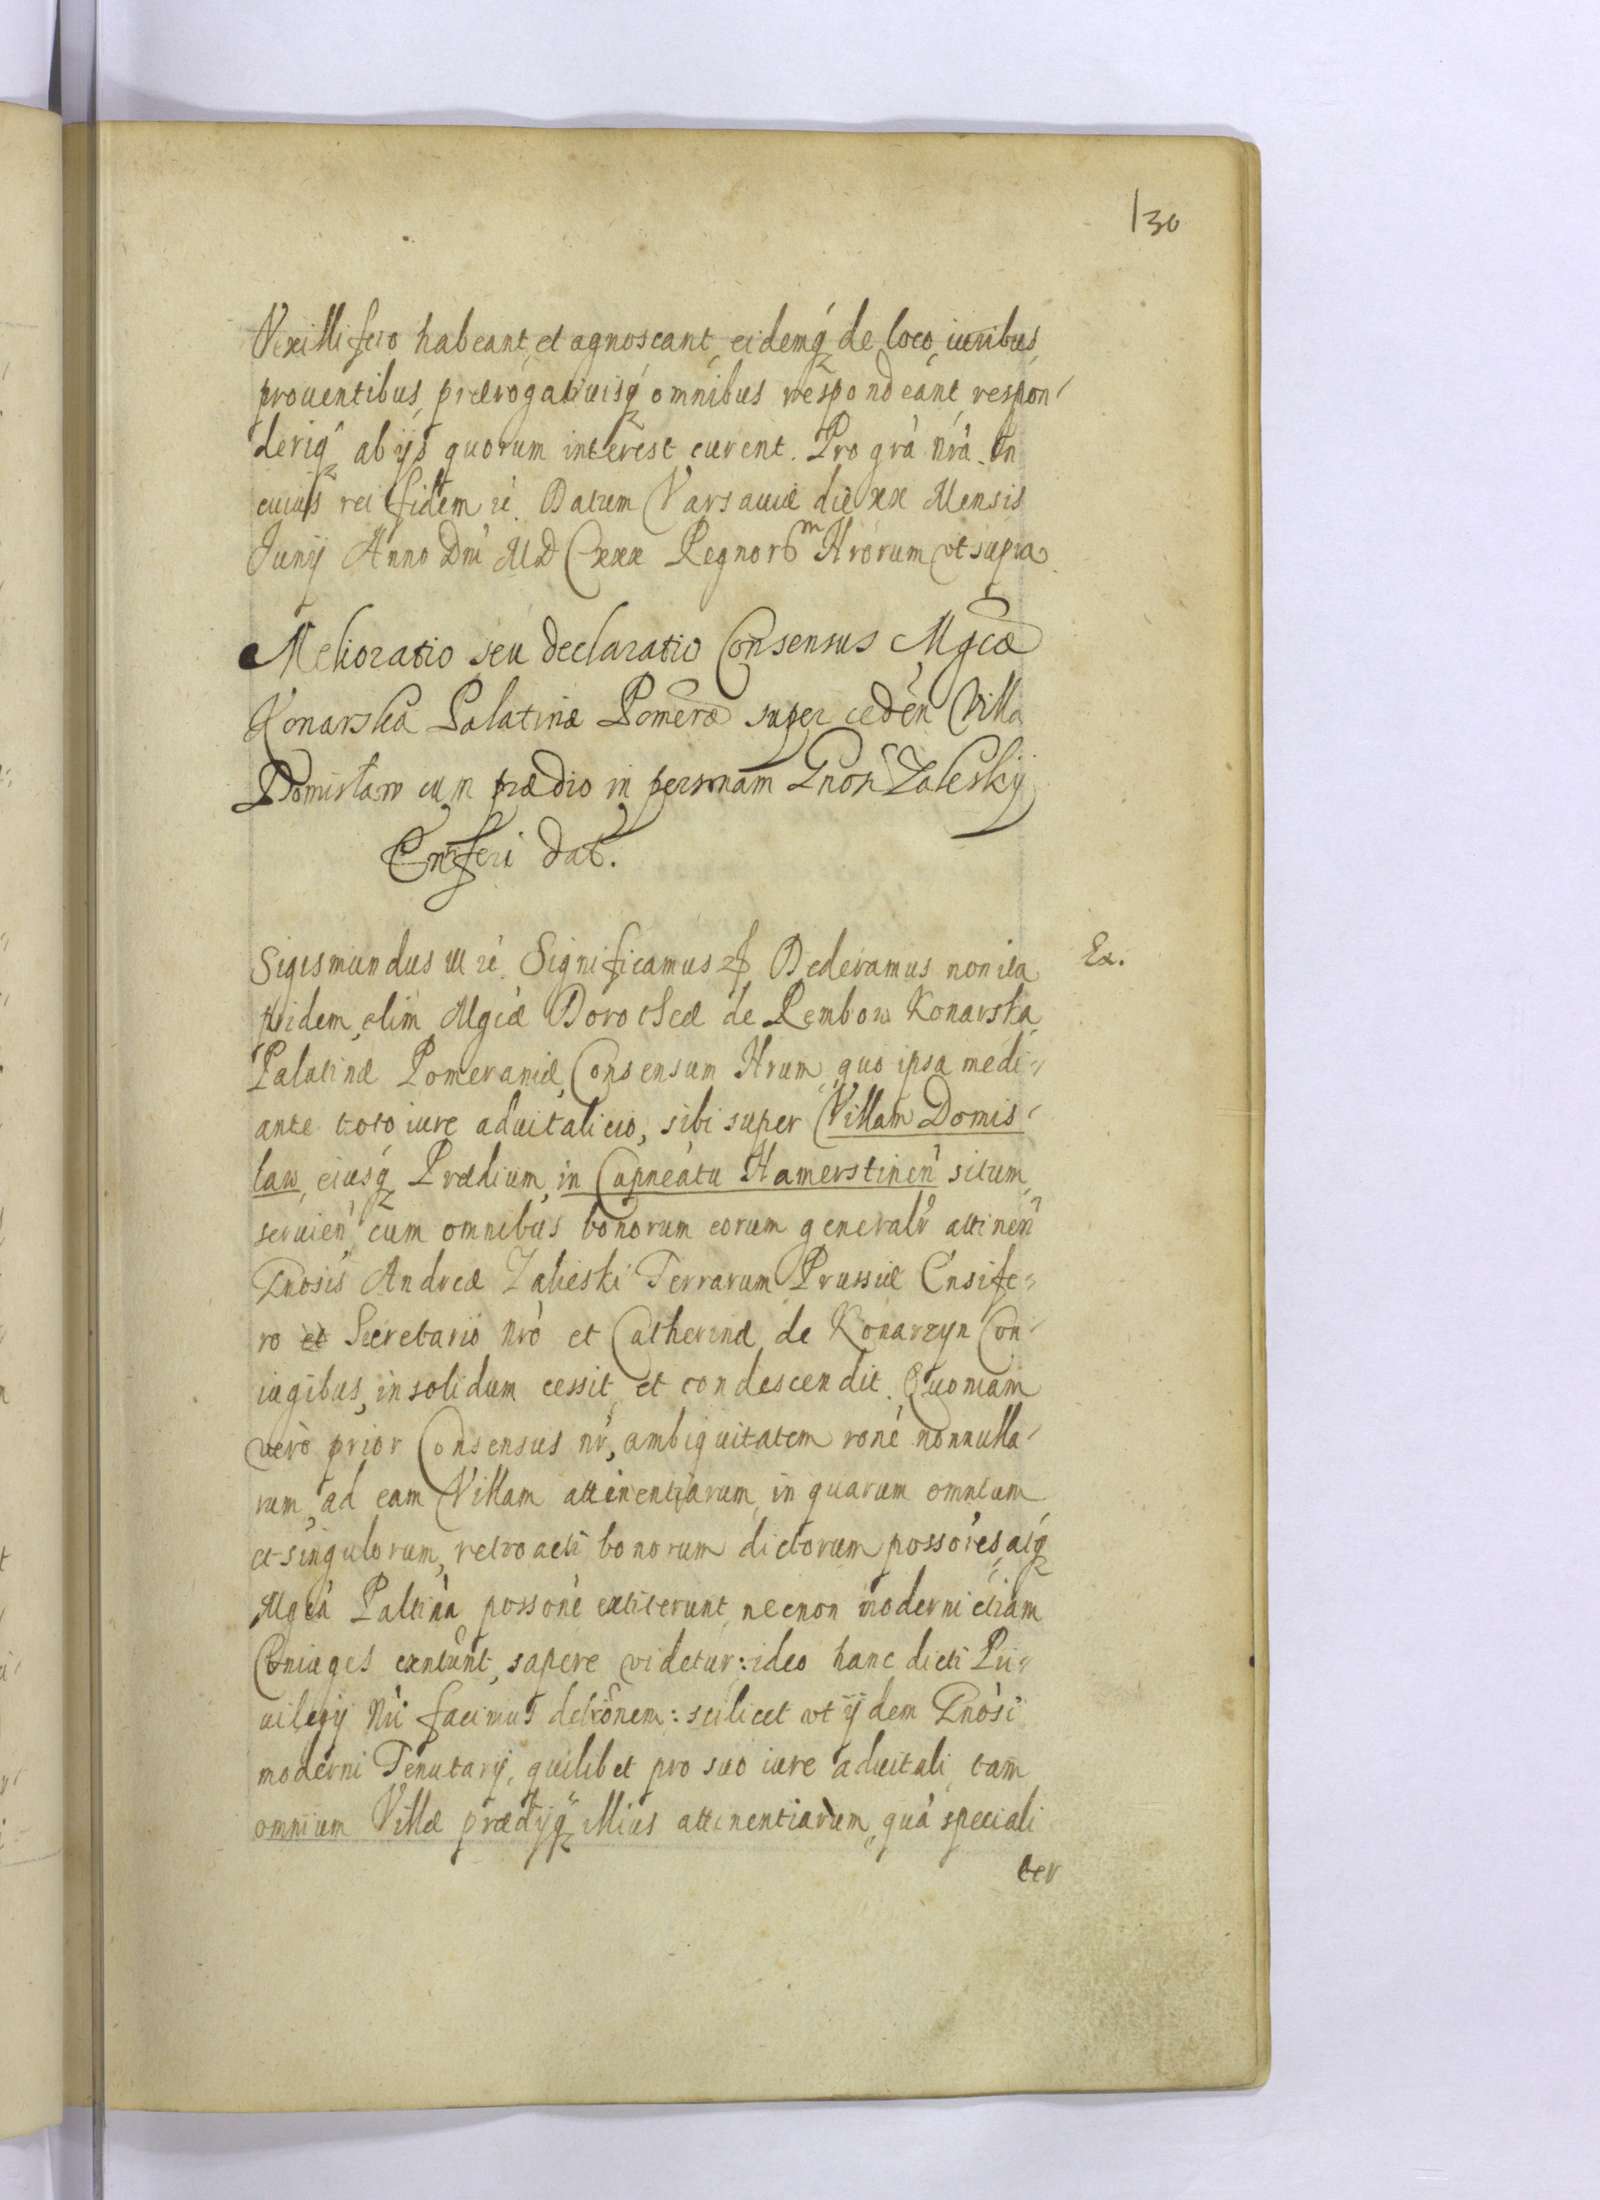 130
Vexillifero habeant, et agnoscant, eidemq́ de loco, iuribus
prouentibus, prærogatiuisq́ omnibus respondeant respon-
deriq́ ab ijs quorum interest curent. Pro grã nrã. In
cuius rei fidem &c. Datum Varsauiæ die xx Mensis
Junij Anno Dni MDCxxx Regnorum Nrorum vt supra
Melioratio seu declaratio Consensus Mgcæ
Konarska Palatinæ Pomeræ super ceden Villa
Domisław cum prædio in personam Gnosi Zaleskij
Ensiferi dat.
Ex.
Sigismundus III &c. Significamus &c. Dederamus non ita
pridem, olim Mgcæ Dorotheæ de Rembow Konarska
Palatinæ Pomeraniæ, Consensum Nrum, quo ipsa medi-
ante toto iure aduitalicio, sibi super Villam Domis-
law, eiusq́ Prædium, in Capneatu Hamerstinen situm,
seruien, cum omnibus bonorum eorum generalr attinen
Gnosis Andreæ Zaleski Terrarum Prussiæ Ensife-
ro et Secretario Nro et Catherinæ de Konarzyn Con-
iugibus, in solidum cessit, et condescendit. Quoniam
vero prior Consensus nr, ambiguitatem rone nonnulla-
rum, ad eam Villam attinentiarum, in quarum omnium
et singulorum, retroacti bonorum dictorum possores, atq́
Mgca Paltina possone extiterunt, necnon moderni etiam
Coniuges existunt, sapere videtur: ideo hanc dicti Pri-
uilegij Nri facimus dclronem: scilicet vt ijdem Gnosi
moderni Tenutarij, quilibet pro suo iure aduitali, tam
omnium Villæ prædijq́ illius attinentiarum, quã speciali
ter